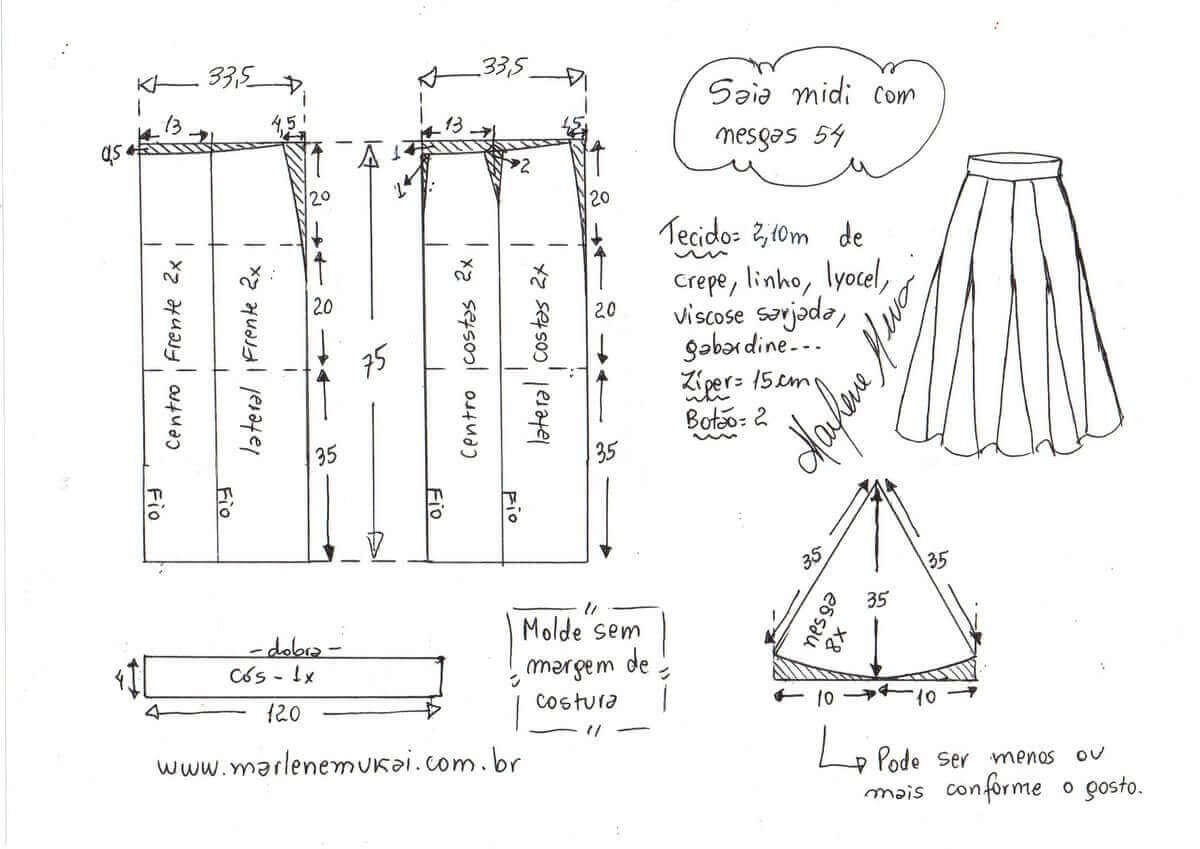 Saia midi com
nesgas 54
33,5
13
4,5
0,5
20
20
35
Centro Frente 2x
lateral Frente 2x
Fio
Fio
75
33,5
13
1,5
1
1
2
20
20
35
Centro costas 2x
lateral Costas 2x
Fio
Fio
Tecido= 2,10m de
crepe, linho, lyocel,
viscose sarjada,
gabardine---
Zíper= 15cm
Botão= 2
Marlene Mukai
35
35
35
nesga
8x
10
10
Pode ser menos ou
mais conforme o gosto.
-dobra-
cós - 1x
4
120
Molde sem
margem de
costura
www.marlenemukai.com.br